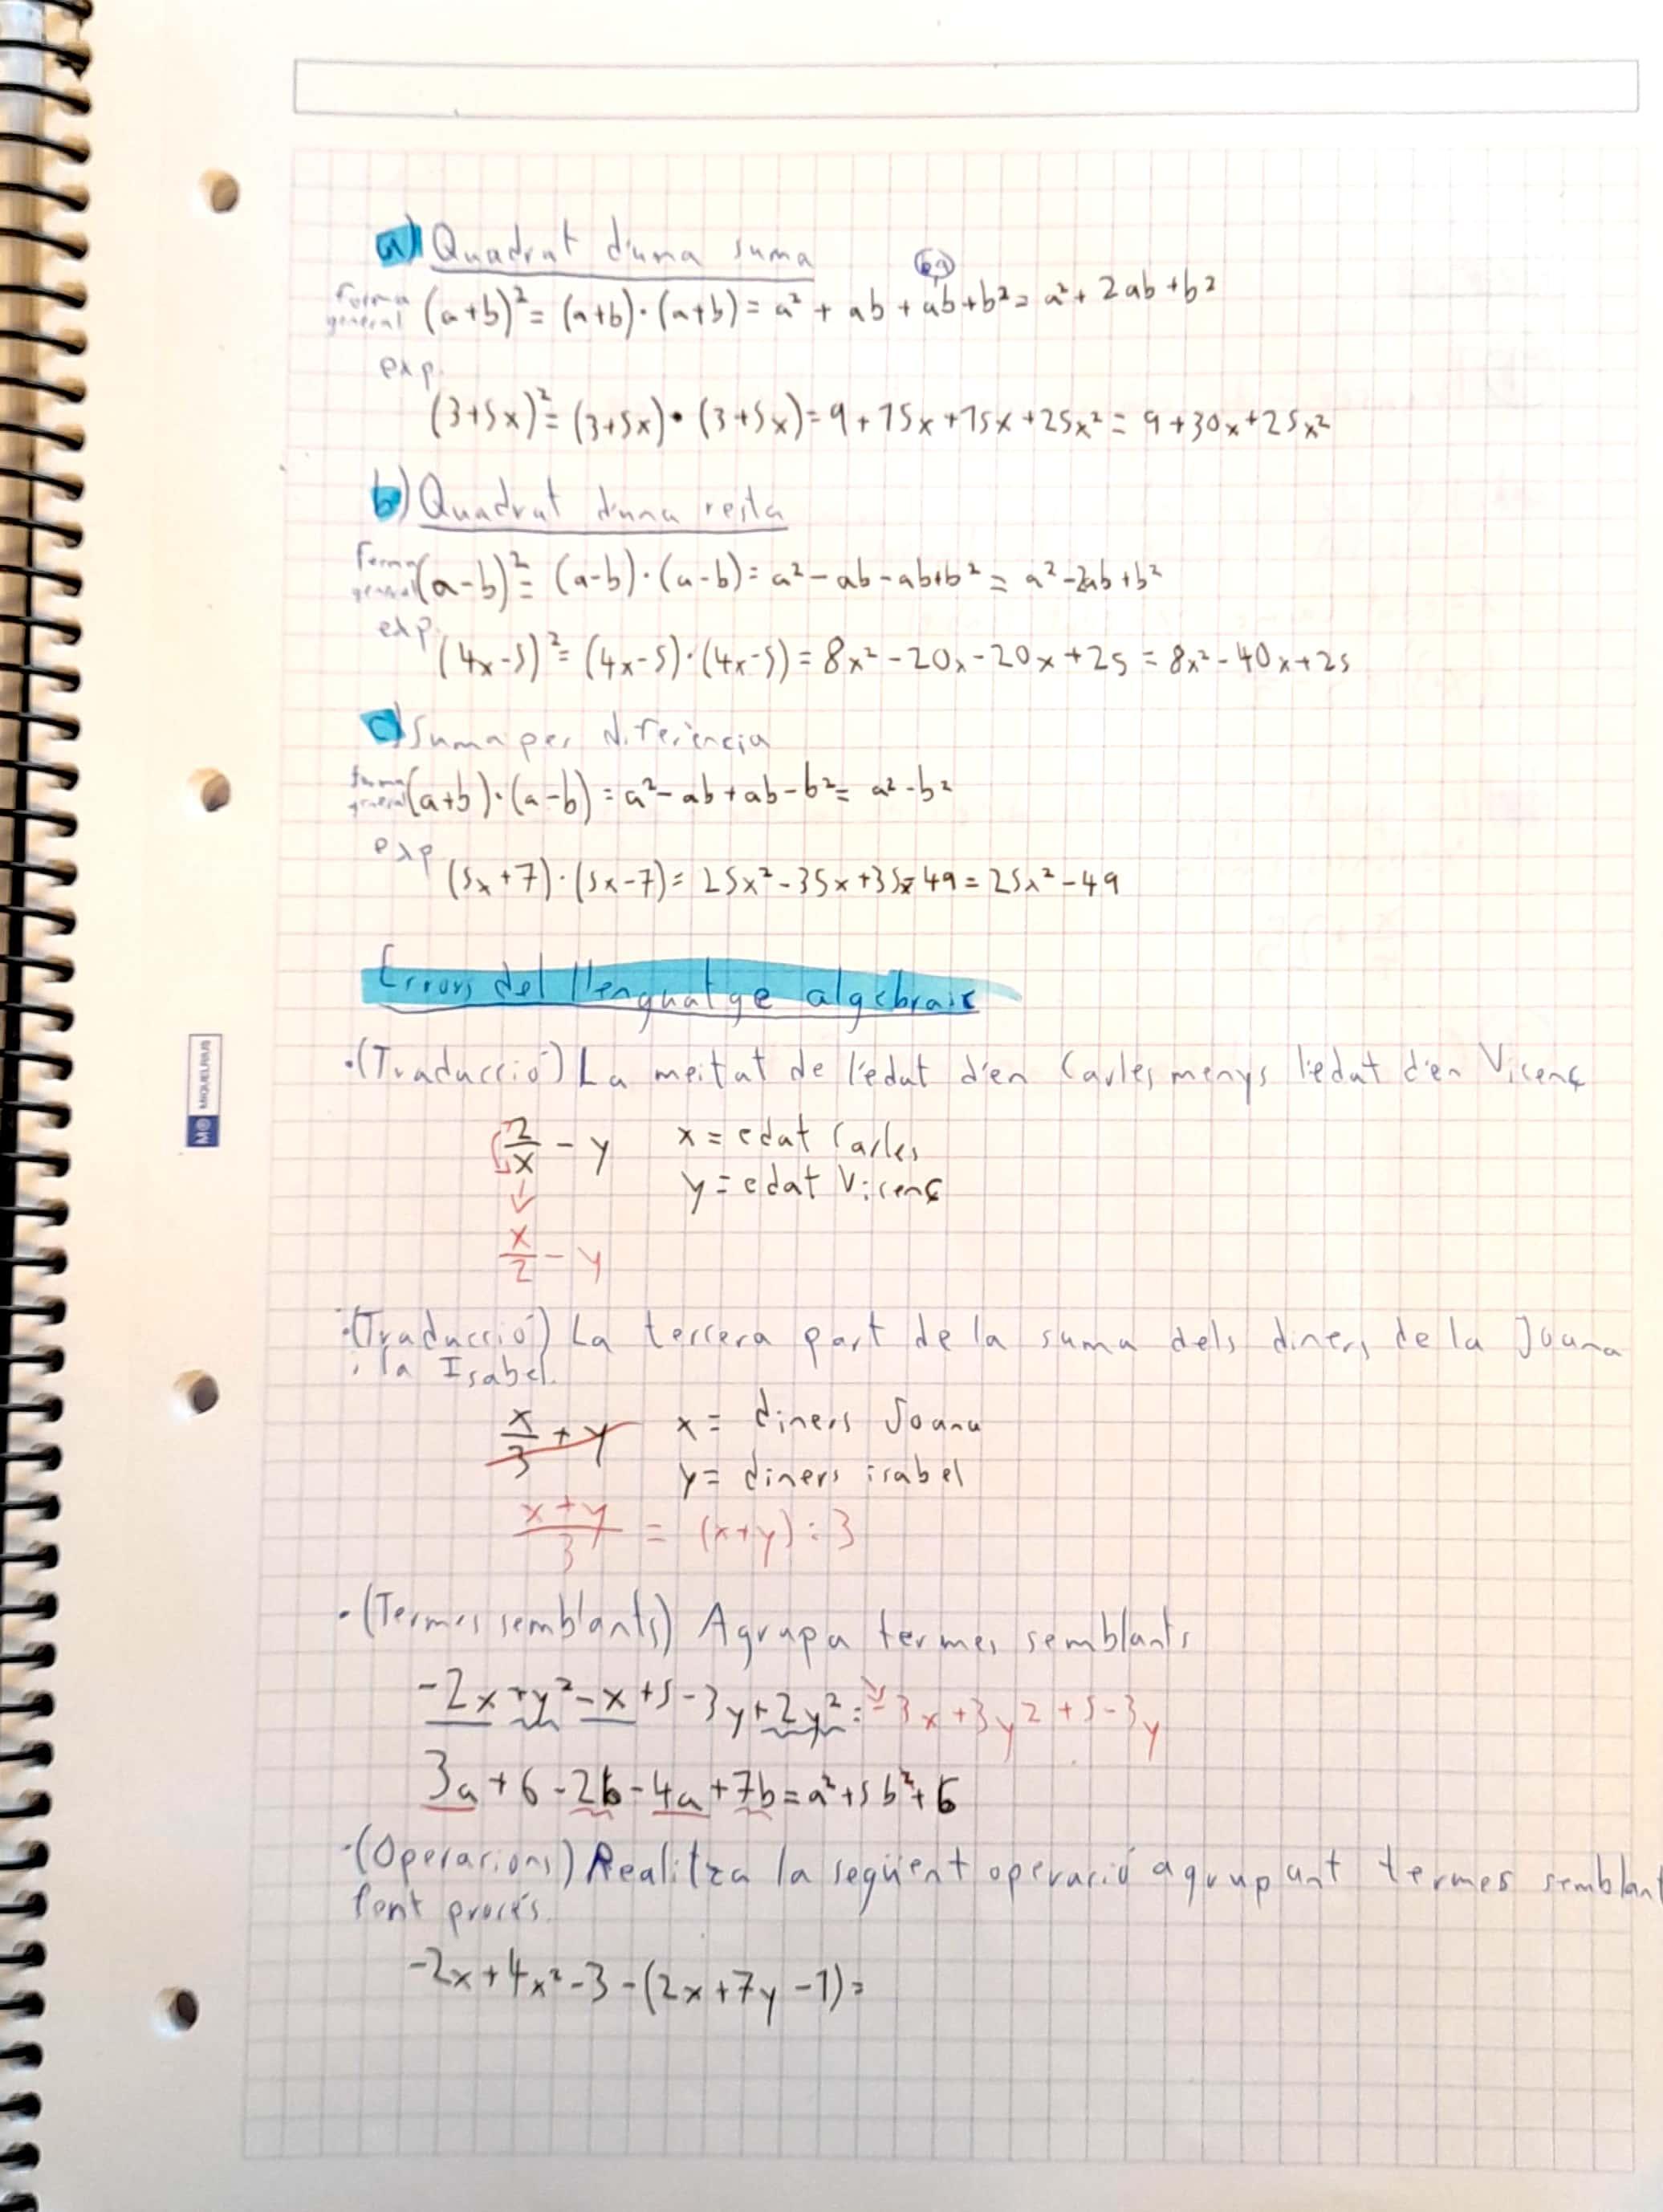 a) Quadrat d'una suma
ba
forma general (a+b)² = (a+b)·(a+b) = a² + ab + ab + b² = a² + 2ab + b²
exp
(3+5x)² = (3+5x)·(3+5x) = 9 + 15x + 15x + 25x² = 9 + 30x + 25x²
b) Quadrat d'una resta
forma general (a-b)² = (a-b)·(a-b) = a² - ab - ab + b² = a² - 2ab + b²
exp.
(4x-5)² = (4x-5)·(4x-5) = 8x² - 20x - 20x + 25 = 8x² - 40x + 25
c) Suma per diferència
forma general (a+b)·(a-b) = a² - ab + ab - b² = a² - b²
exp
(5x+7)·(5x-7) = 25x² - 35x + 35x - 49 = 25x² - 49
Errors del llenguatge algebraic
·(Traducció) La meitat de l'edat d'en Carles menys l'edat d'en Vicenç
2/x - y x = edat Carles
y = edat Vicenç
x/2 - y
·(Traducció) La tercera part de la suma dels diners de la Joana
i la Isabel.
x/3 + y x = diners Joana
y = diners isabel
x+y/3 = (x+y):3
·(Termes semblants) Agrupa termes semblants
-2x + y² - x + 5 - 3y + 2y² = -3x + 3y2 + 5 - 3y
3a + 6 - 2b - 4a + 7b = a² + 5b² + 6
·(Operacions) Realitza la següent operació agrupant termes semblant
fent procés.
-2x + 4x² - 3 - (2x + 7y - 1) =
MIQUELRIUS